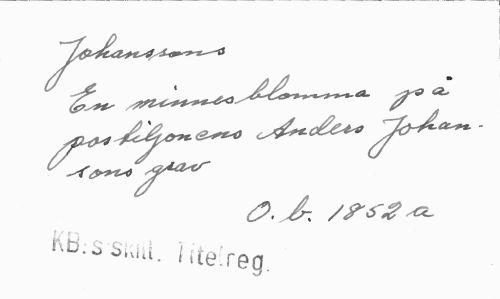 Johanssons
En minnesblomma på
postiljonens Anders Johan-
sons grav
O.b. 1852 a
KB:s skill. Titelreg.